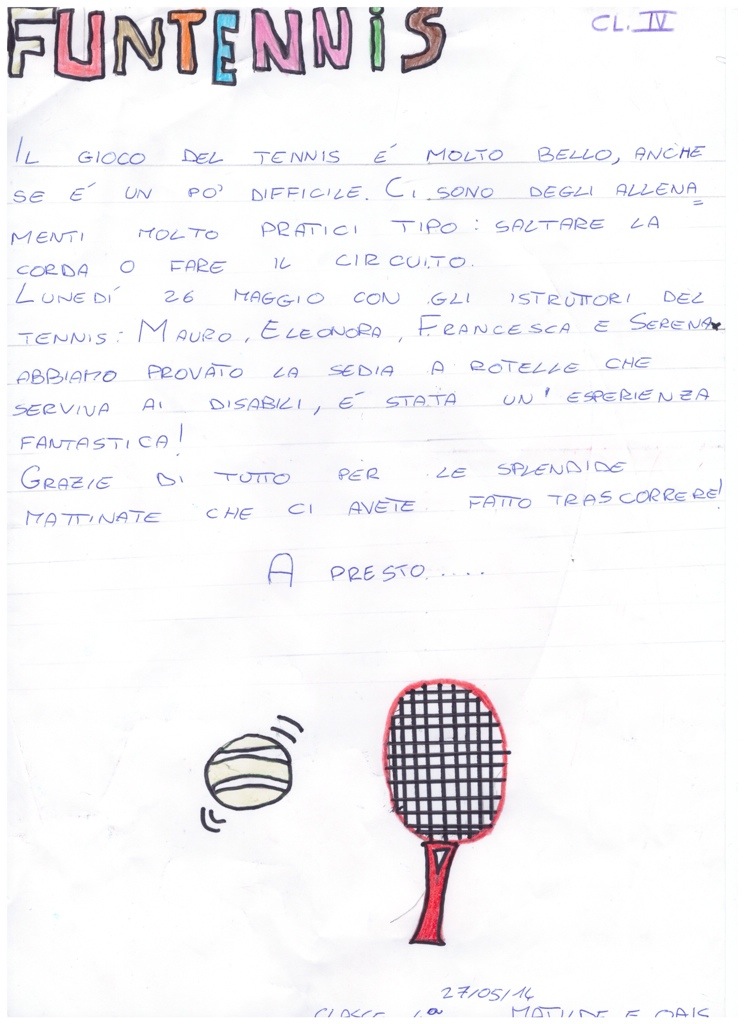 FUNTENNIS
CL. IV
IL GIOCO DEL TENNIS É MOLTO BELLO, ANCHE
SE É UN PO' DIFFICILE. CI SONO DEGLI ALLENA
MENTI MOLTO PRATICI TIPO: SALTARE LA
CORDA O FARE IL CIRCUITO.
LUNEDÍ 26 MAGGIO CON GLI ISTRUTTORI DEL
TENNIS: MAURO, ELEONORA, FRANCESCA E SERENA
ABBIAMO PROVATO LA SEDIA A ROTELLE CHE
SERVIVA AI DISABILI, É STATA UN' ESPERIENZA
FANTASTICA!
GRAZIE DI TUTTO PER LE SPLENDIDE
MATTINATE CHE CI AVETE FATTO TRASCORRERE!
A PRESTO.....
27/05/14
CLASSE 4ª MATILDE E